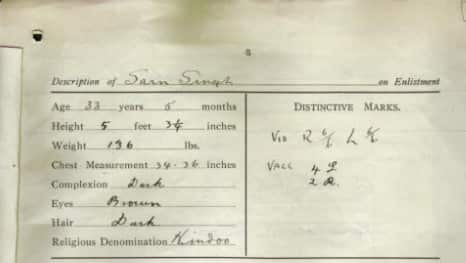 3
Description of Sarn Singh on Enlistment
Age 33 years 5 months
Height 5 feet 3¼ inches
Weight 136 lbs.
Chest Measurement 34-36 inches
Complexion Dark
Eyes Brown
Hair Dark
Religious Denomination Hindoo
DISTINCTIVE MARKS.
Vis R 6/6 L 6/6
Vacc 4 L
2 R.